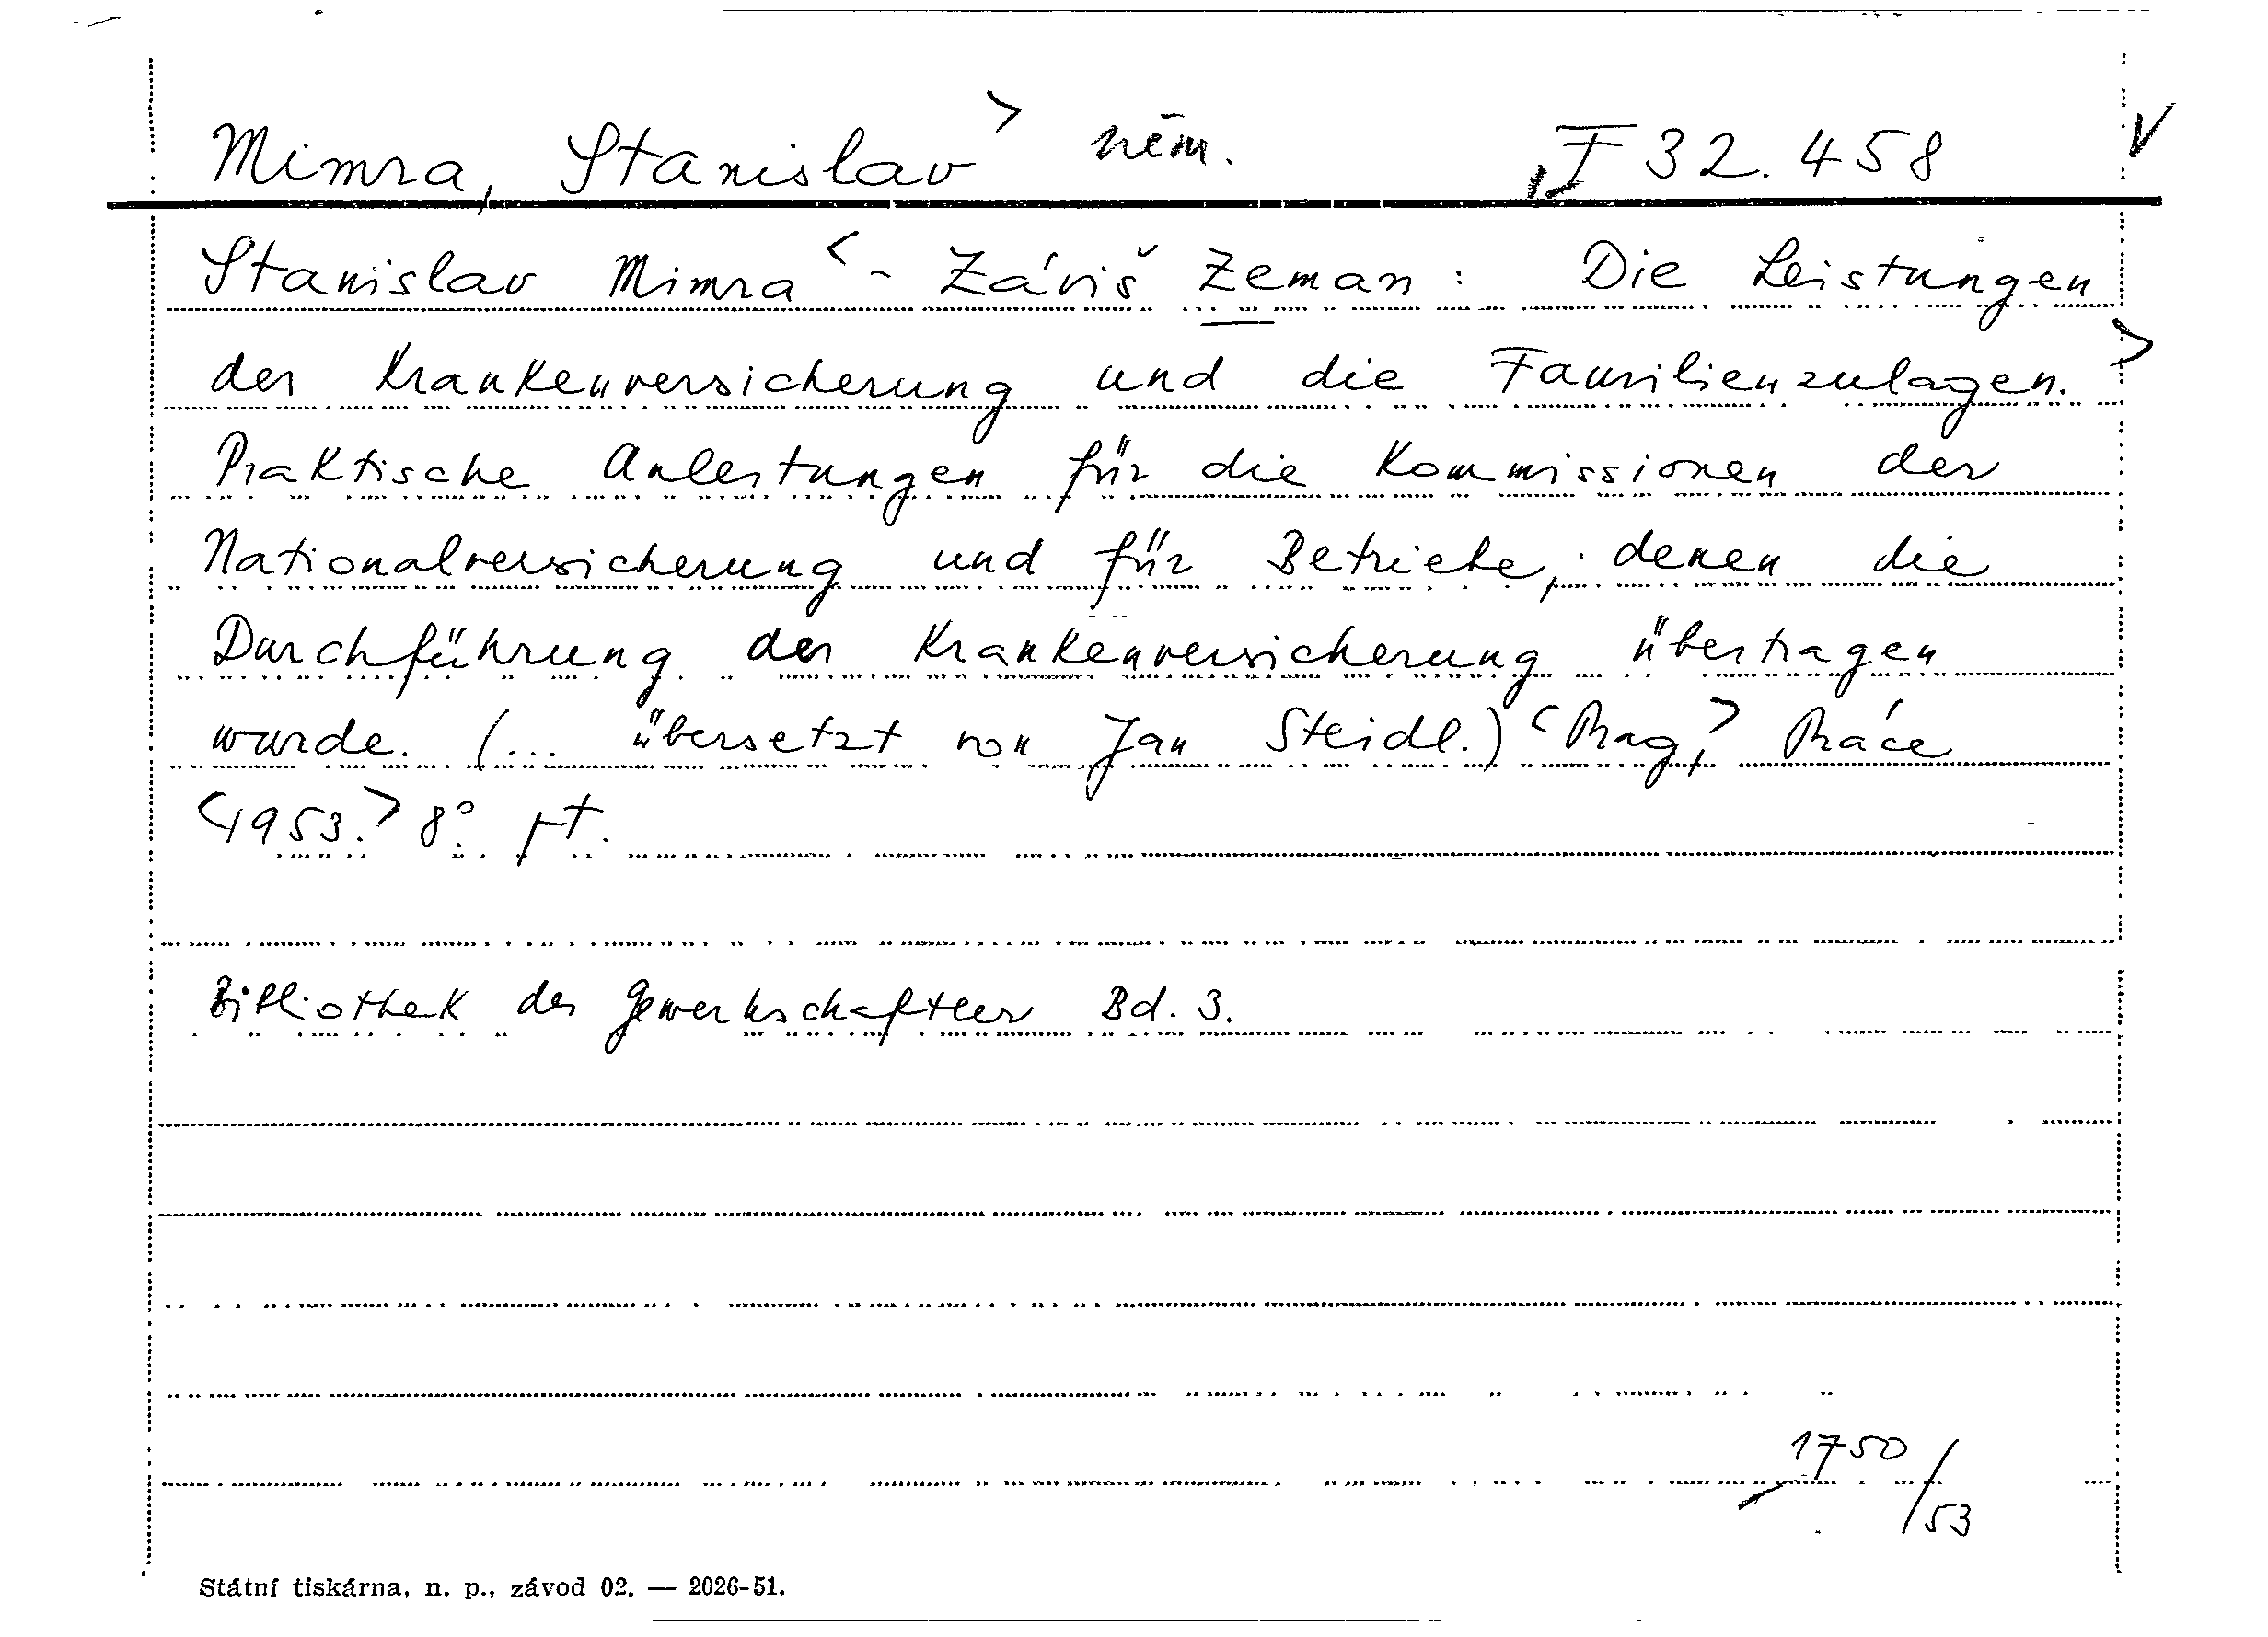 Mimra, Stanislav > něm. F 32.458 V
Stanislav Mimra < - Záviš Zeman: Die Leistungen
der Krankenversicherung und die Familienzulagen. >
Praktische Anleitungen für die Kommissionen der
Nationalversicherung und für Betriebe, denen die
Durchführung der Krankenversicherung übertragen
wurde. (... übersetzt von Jan Steidl.) <Prag,> Práce
<1953.> 8°.
Bibliothek des Gewerkschaftler Bd. 3.
1750/53
Státní tiskárna, n. p., závod 02. — 2026-51.